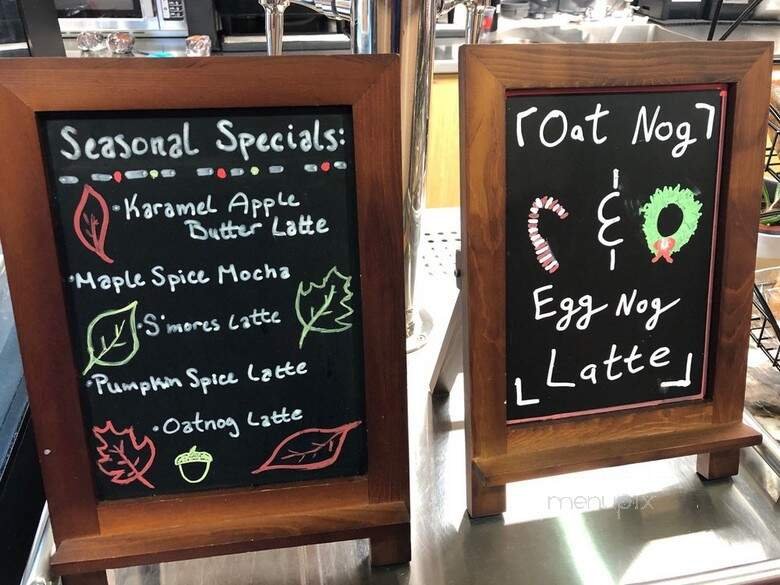 Seasonal Specials:
• Karamel Apple
Butter Latte
• Maple Spice Mocha
• S'mores Latte
• Pumpkin Spice Latte
• Oatnog Latte
Oat Nog
&
Egg Nog
Latte
menupix